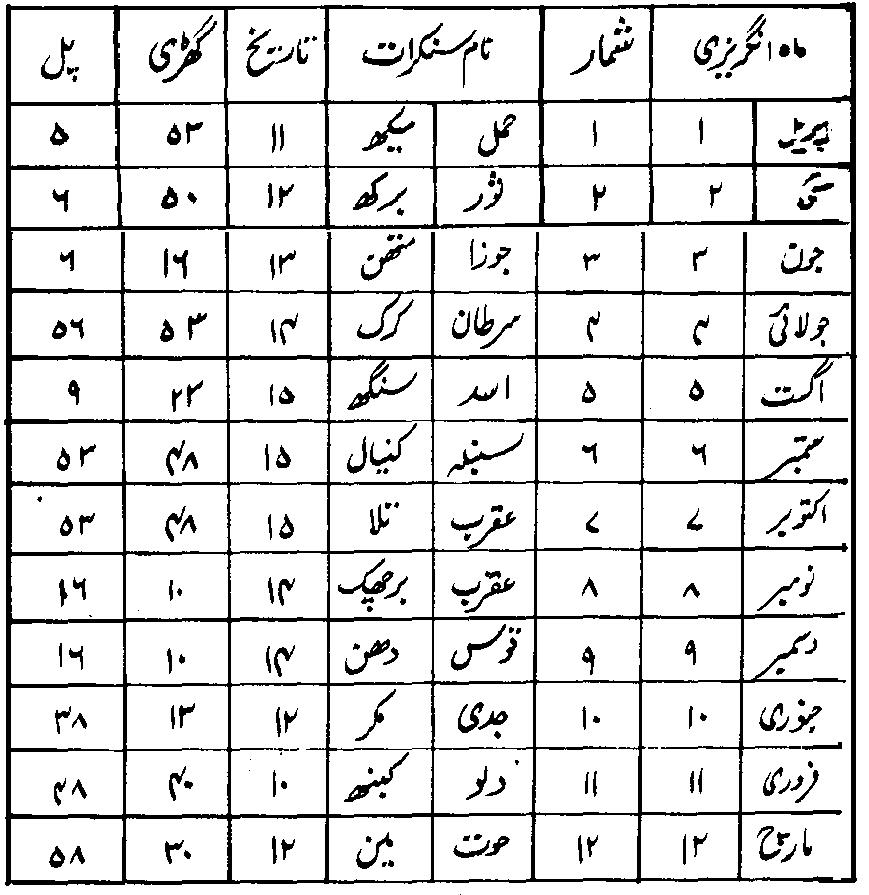 ماہ انگریزی شمار نام سنکرات تاریخ گھڑی پل
اپریل ۱ ۱ حمل میکھ ۱۱ ۵۳ ۵
مئی ۲ ۲ ثور برکھ ۱۲ ۵۰ ۶
جون ۳ ۳ جوزا متھن ۱۳ ۱۶ ۶
جولائی ۴ ۴ سرطان کرک ۱۴ ۵۳ ۵۶
اگست ۵ ۵ اسد سنگھ ۱۵ ۲۳ ۹
ستمبر ۶ ۶ سنبلہ کنیال ۱۵ ۴۸ ۵۳
اکتوبر ۷ ۷ عقرب تلا ۱۵ ۴۸ ۵۳
نومبر ۸ ۸ عقرب برچھیک ۱۴ ۱۰ ۱۶
دسمبر ۹ ۹ قوس دھن ۱۴ ۱۰ ۱۶
جنوری ۱۰ ۱۰ جدی مکر ۱۲ ۱۳ ۳۸
فروری ۱۱ ۱۱ دلو کنبھ ۱۰ ۴۰ ۴۸
مارچ ۱۲ ۱۲ حوت مین ۱۲ ۳۰ ۵۸